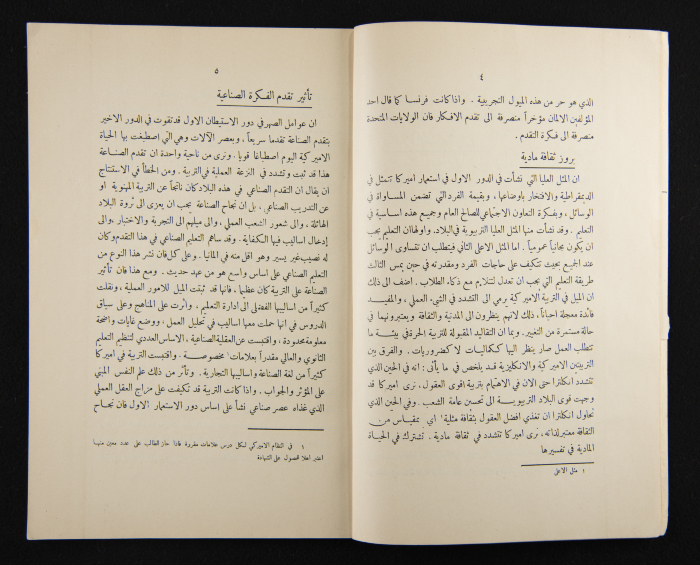 ٤
الذي هو حر من هذه الميول التجريبية . واذا كانت فرنسا كما قال احد
المؤلفين الالمان مؤخراً منصرفة الى تقدم الافكار فان الولايات المتحدة
منصرفة الى فكرة التقدم .
بروز ثقافة مادية
ان المثل العليا التي نشأت في الدور الاول في استعمار اميركا تتمثل في
الديمقراطية والافتخار باوضاعها ، وبقيمة الفرد التي تضمن المساواة في
الوسائل ، وبفكرة التعاون الاجتماعي للصالح العام وجميع هذه اساسية في
التعليم . وقد نشأت منها المثل العليا التربوية في البلاد، واولها ان التعليم يجب
ان يكون مجانياً عمومياً . اما المثل الاعلى الثاني فيتطلب ان تتساوى الوسائل
عند الجميع بحيث تتكيف على حاجات الفرد ومقدرته في حين يمس الثالث
طريقة التعليم التي يجب ان تعدل لتتلايم مع ذكاء الطلاب . اضف الى ذلك
ان الميل في التربية الاميركية يرمي الى التشدد في الشيء العملي ، والمفيد
فائدة معجلة احياناً ، ذلك لانهم ينظرون الى المدنية والثقافة ويعتبرونهما في
حالة مستمرة من التغيير. وبما ان التقاليد المقبولة للتربية الحرة في بيئة ما
تتطلب العمل صار ينظر اليها ككماليات لا كضروريات . والفرق بين
التربيتين الاميركية والانكليزية قد يلخص في ما يأتي : انه في الحين الذي
تشدد انكلترا حتى الان في الاهتمام بتربية اقوى العقول ، نرى اميركا قد
وجهت قوى البلاد التربوية الى تحسين عامة الشعب . وفي الحين الذي
تحاول انكلترا ان تغذي افضل العقول بثقافة مثلية١ اي بمقياس من
الثقافة معتبر لذاته، نرى اميركا تتشدد في ثقافة مادية . تشترك في الحياة
المادية في تفسيرها
١ مثل الاعلى
٥
تأثير تقدم الفكرة الصناعية
ان عوامل الصهر في دور الاستيطان الاول قد تقوت في الدور الاخير
بتقدم الصناعة تقدما سريعاً ، وبعصر الآلات وهي التي اصطبغت بها الحياة
الاميركية اليوم اصطباغا قويا . ونرى من ناحية واحدة ان تقدم الصناعة
هذا قد ثبت وتشدد في النزعة العملية في التربية . ومن الخطأ في الاستنتاج
ان يقال ان التقدم الصناعي في هذه البلاد كان ناتجاً عن التربية المهنوية او
عن التدريب الصناعي ، بل ان نجاح الصناعة يجب ان يعزى الى ثروة البلاد
الهائلة . والى شعور الشعب العملي ، والى ميلهم الى التجربة والاختبار ، والى
إدخال اساليب فيها الكفاية . وقد ساهم التعليم الصناعي في هذا التقدم وكان
له نصيب غير يسير وهو اقل منه في المانيا . وعلى كل فان نشر هذا النوع من
التعليم الصناعي على اساس واسع هو من عهد حديث . ومع هذا فان تأثير
الصناعة على التربية كان عظيما . فانها قد ثبتت الميل للامور العملية ، ونقلت
كثيراً من اساليبها الفضلى الى ادارة التعليم . واثرت على المناهج وعلى سياق
الدروس في انها حلت معها اساليب في تحليل العمل ، ووضع غايات واضحة
معلومة محدودة ، واقتبست عن العقلية الصناعية ، الاساس العددي لتنظيم التعليم
الثانوي والعالي مقدراً بعلامات١ مخصوصة . واقتبست التربية في اميركا
كثيراً من لغة الصناعة واساليبها التجارية . وتأثر من ذلك علم النفس المبني
على المؤثر والجواب . واذا كانت التربية قد تكيفت على مزاج العقل العملي
الذي غذاه عصر صناعي نشأ على اساس دور الاستعمار الاول فان نجاح
١ في النظام الاميركي لكل درس علامات مقررة فاذا حاز الطالب على عدد معين منها
اعتبر اهلا للحصول على الشهادة